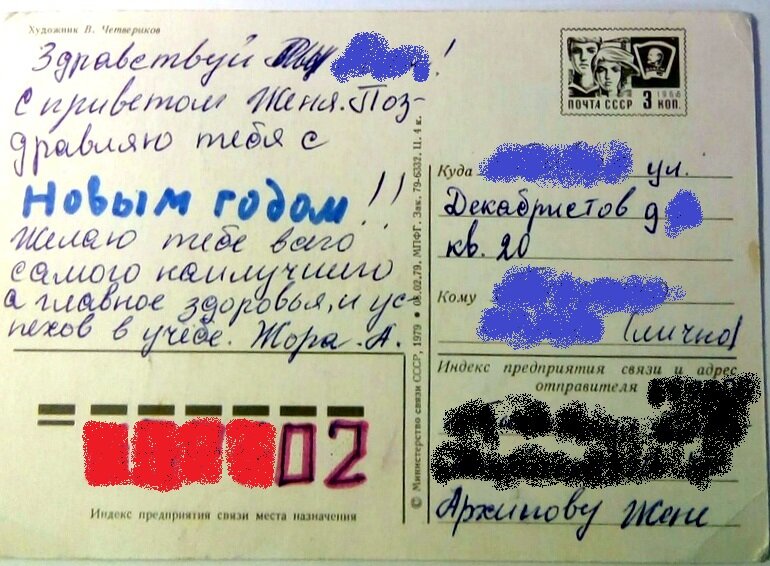 Художник В. Четвериков
Здравствуй !
с приветом Женя. Поз-
дравляю тебя с
Новым годом!!
Желаю тебе всего
самого наилучшего
а главное здоровья, и ус-
пехов в учебе. Жора. А.
02
Индекс предприятия связи места назначения
© Министерство связи СССР, 1979 • 08.02.79, МПФГ, Зак. 79-6332. Ц. 4 к.
ПОЧТА СССР 3 КОП.
1966
Куда ул.
Декабристов д
кв. 20
Кому
(лично)
Индекс предприятия связи и адрес
отправителя
Архипову Жене